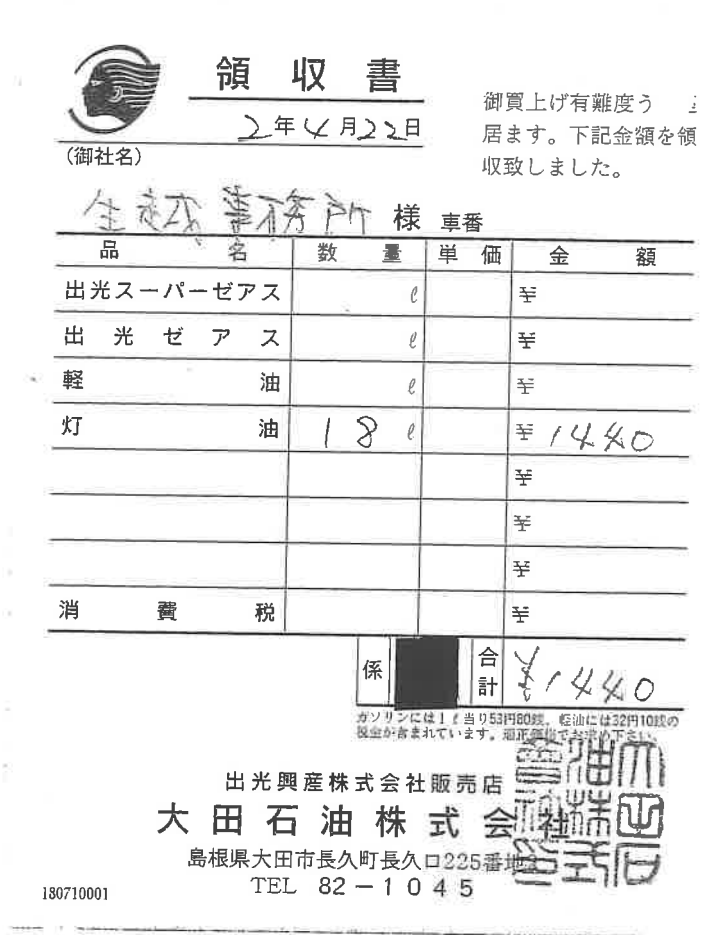 領収書
2年4月22日
御買上げ有難度う
居ます。下記金額を領
収致しました。
(御社名)
生越 事務所 様 車番
品名 数量 単価 金額
出光スーパーゼアス ℓ ¥
出光ゼアス ℓ ¥
軽油 ℓ ¥
灯油 18 ℓ ¥1440
¥
¥
¥
消費税 ¥
係 合計 ¥1440
ガソリンには1ℓ当り53円80銭、軽油には32円10銭の
税金が含まれています。適正価格でお求め下さい。
出光興産株式会社販売店
大田石油株式会社
島根県大田市長久町長久口225番地
TEL 82-1045
180710001